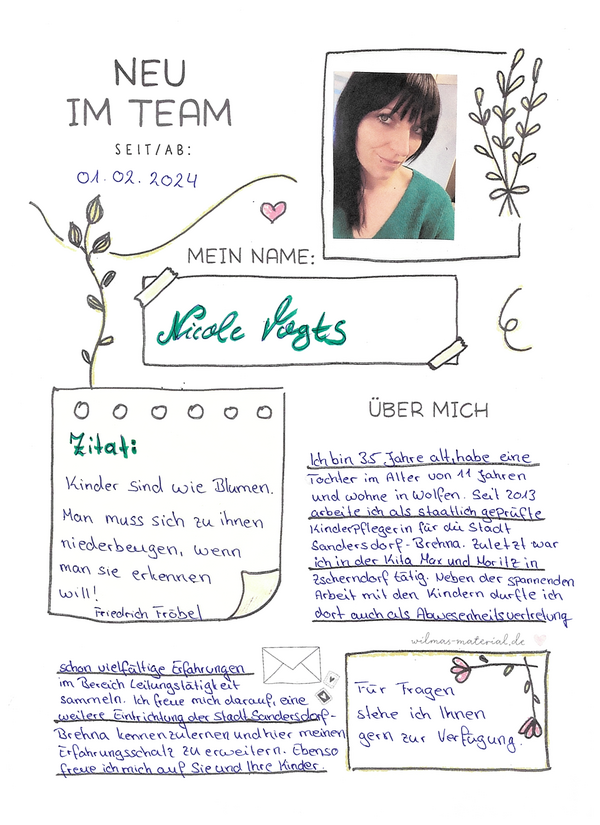 NEU
IM TEAM
SEIT/AB:
01.02.2024
MEIN NAME:
Nicole Voegts
Zitat:
Kinder sind wie Blumen.
Man muss sich zu ihnen
niederbeugen, wenn
man sie erkennen
will!
Friedrich Fröbel
ÜBER MICH
Ich bin 35 Jahre alt, habe eine
Tochter im Alter von 11 Jahren
und wohne in Wolfen. Seit 2013
arbeite ich als staatlich geprüfte
Kinderpflegerin für die Stadt
Sandersdorf-Brehna. Zuletzt war
ich in der Kita Max und Moritz in
Zscherndorf tätig. Neben der spannenden
Arbeit mit den Kindern durfte ich
dort auch als Abwesenheitsvertretung
wilmas-material.de
schon vielfältige Erfahrungen
im Bereich Leitungstätigkeit
sammeln. Ich freue mich darauf, eine
weitere Einrichtung der Stadt Sandersdorf-
Brehna kennenzulernen und hier meinen
Erfahrungsschatz zu erweitern. Ebenso
freue ich mich auf Sie und Ihre Kinder.
Für Fragen
stehe ich Ihnen
gern zur Verfügung.